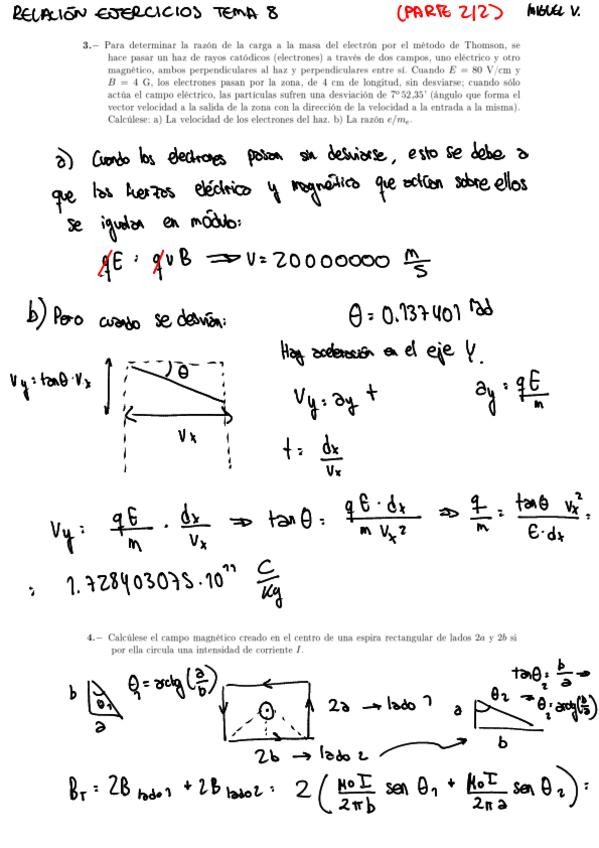 RELACIÓN EJERCICIOS TEMA 8 (PARTE 2/2) MIGUEL V.
3.– Para determinar la razón de la carga a la masa del electrón por el método de Thomson, se
hace pasar un haz de rayos catódicos (electrones) a través de dos campos, uno eléctrico y otro
magnético, ambos perpendiculares al haz y perpendiculares entre sí. Cuando E = 80 V/cm y
B = 4 G, los electrones pasan por la zona, de 4 cm de longitud, sin desviarse; cuando sólo
actúa el campo eléctrico, las partículas sufren una desviación de 7º 52,35' (ángulo que forma el
vector velocidad a la salida de la zona con la dirección de la velocidad a la entrada a la misma).
Calcúlese: a) La velocidad de los electrones del haz. b) La razón e/mₑ.
a) Cuando los electrones pasan sin desviarse, esto se debe a
que las fuerzas eléctrico y magnético que actúan sobre ellos
se igualan en módulo:
qE = qvB ⇒ v = 20000000 m/s
b) Pero cuando se desvían: θ = 0.137401 rad
Hay aceleración en el eje Y.
Vy = tanθ·Vx θ
Vx
Vy = ay t ay = qE/m
t = dx/Vx
Vy = qE/m · dx/Vx ⇒ tanθ = qE·dx/m Vx² ⇒ q/m = tanθ Vx²/E·dx =
= 1.728403075·10¹¹ C/Kg
4.– Calcúlese el campo magnético creado en el centro de una espira rectangular de lados 2a y 2b si
por ella circula una intensidad de corriente I.
b θ₁ a θ₁ = arctg(a/b)
2a → lado 1
2b → lado 2
a θ₂ b tanθ₂ = b/a ⇒
⇒ θ₂ = arctg(b/a)
B_T = 2B lado 1 + 2B lado 2 = 2 ( μ₀I/2πb sen θ₁ + μ₀I/2πa sen θ₂ ) =